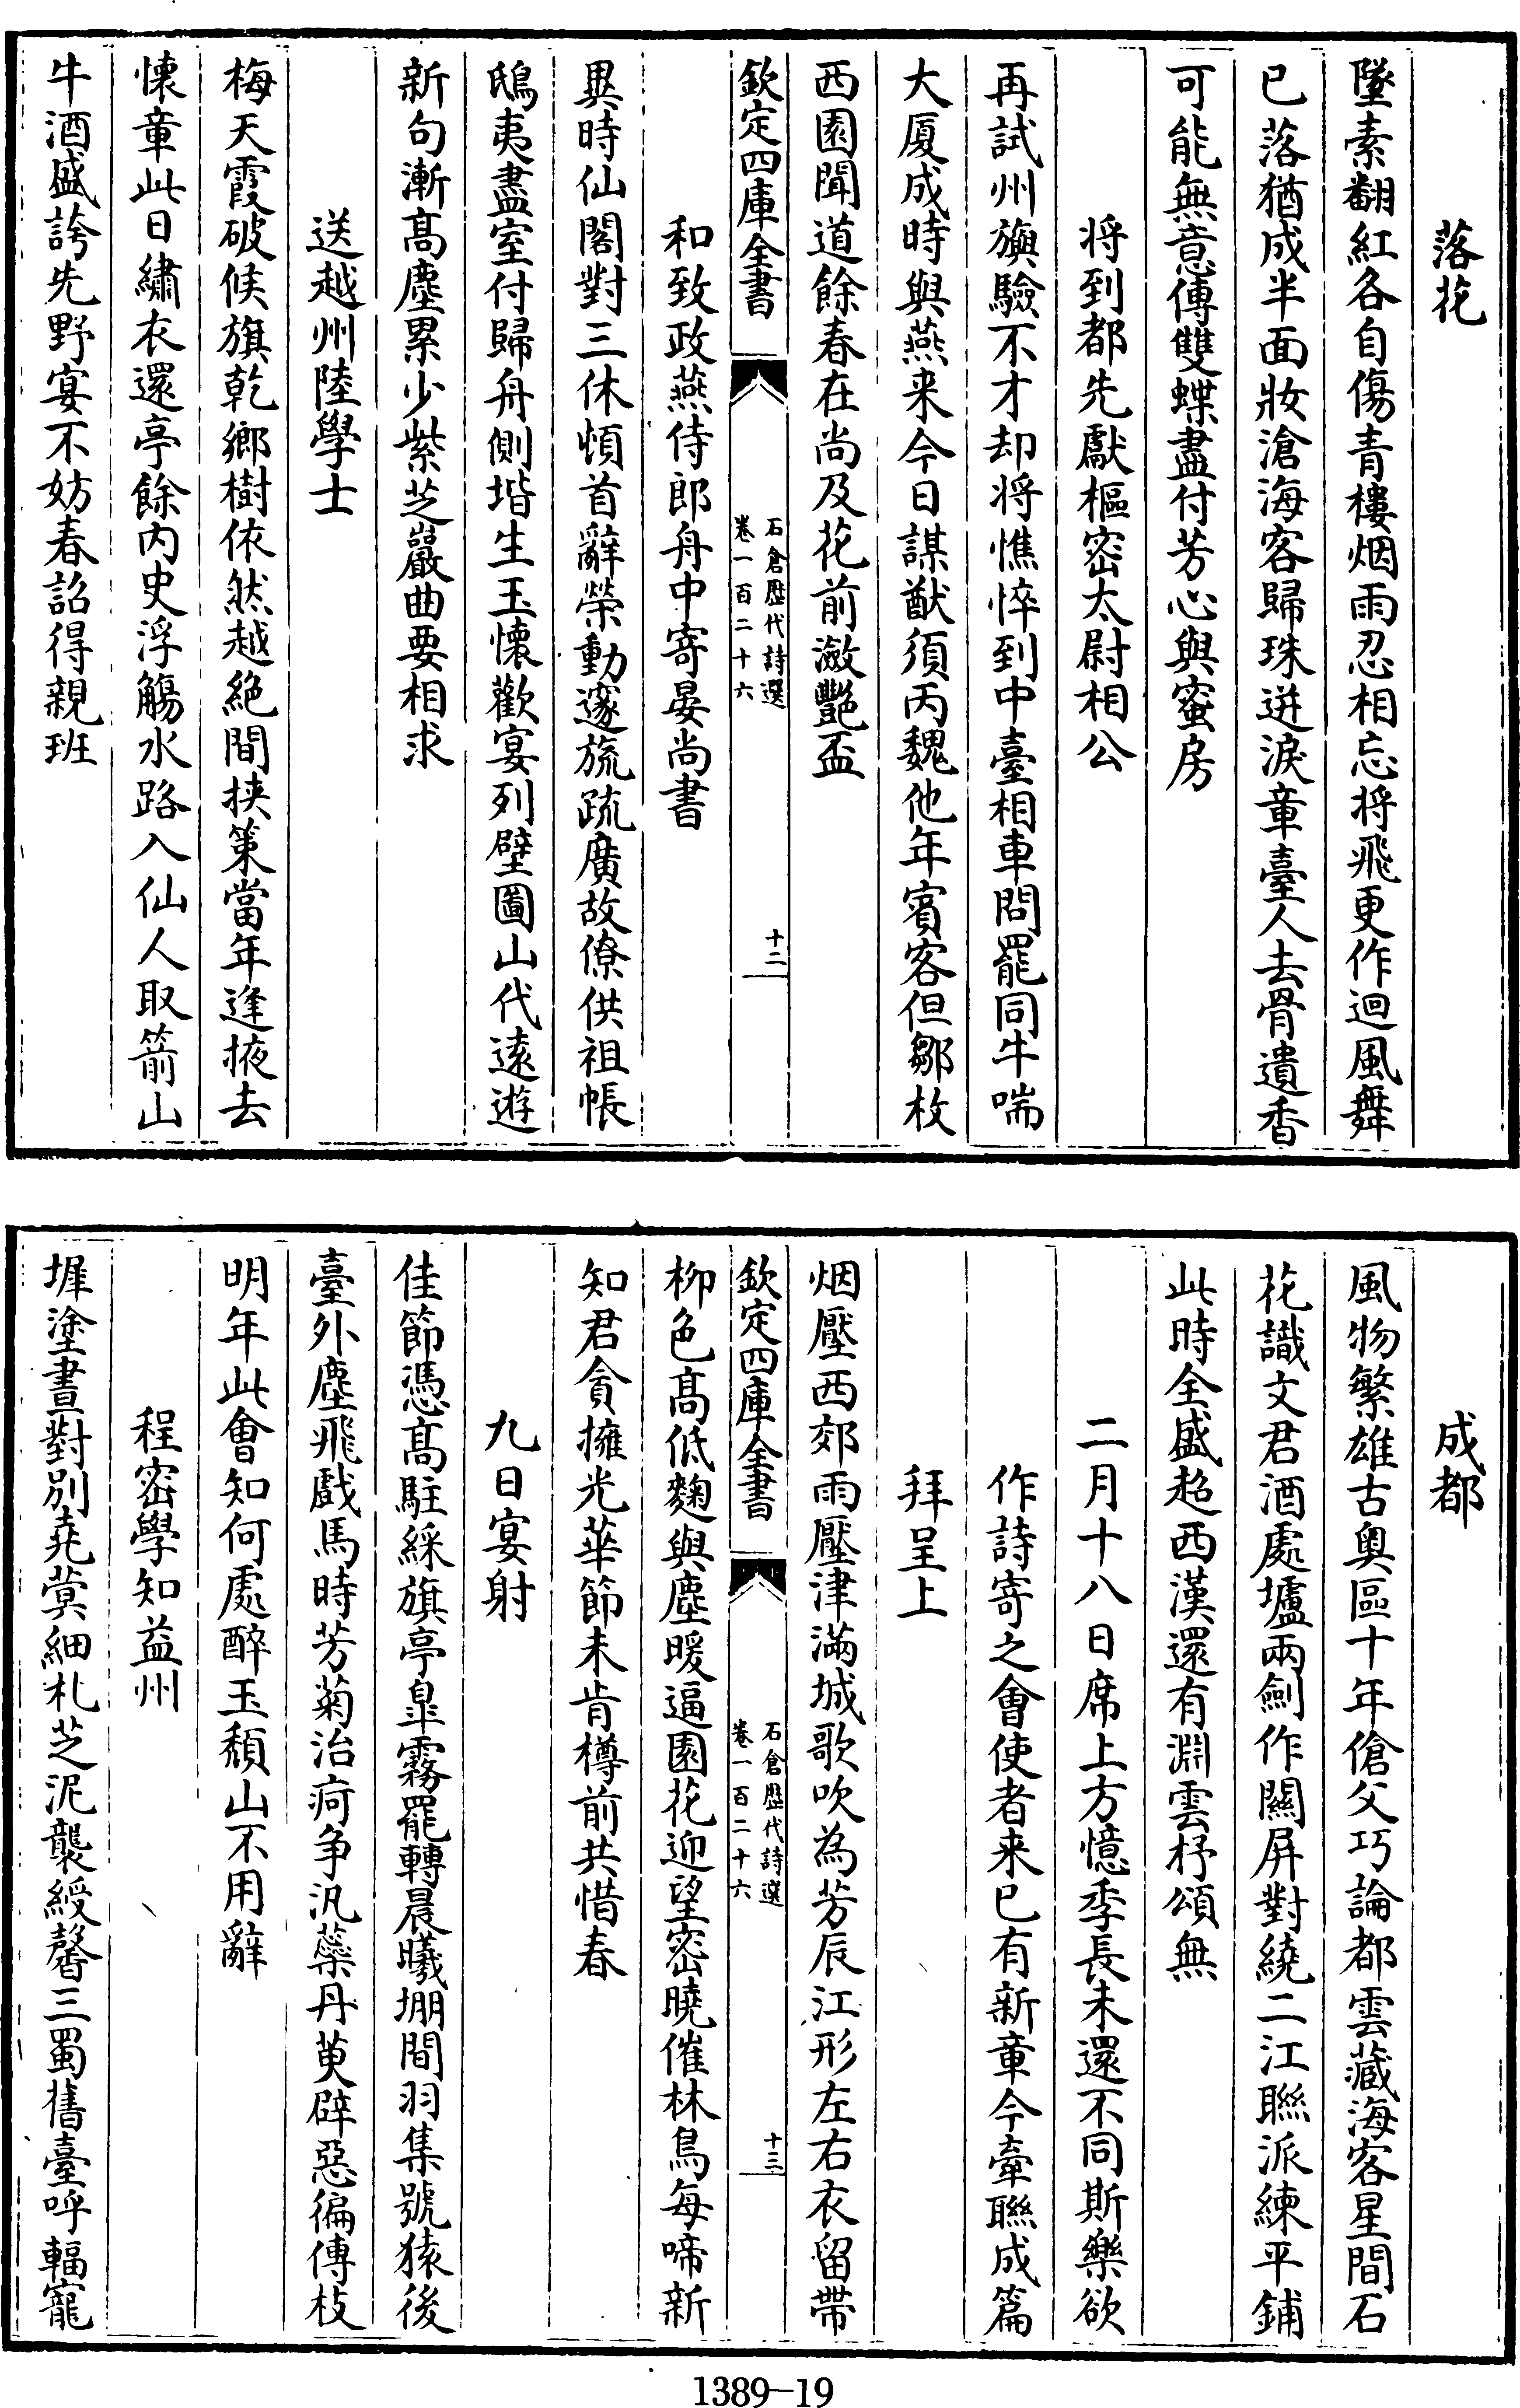 落花
墜素翻紅各自傷青樓烟雨忍相忘将飛更作迴風舞
已落猶成半面妝滄海客歸珠迸淚章臺人去骨遺香
可能無意傳雙蝶盡付芳心與蜜房
将到都先獻樞密太尉相公
再試州旟驗不才却将憔悴到中臺相車問罷同牛喘
大厦成時與燕来今日謀猷須丙魏他年賓客但鄒枚
西園聞道餘春在尚及花前瀲艷盃
欽定四庫全書
石倉歷代詩選
卷一百二十六
十二
和致政燕侍郎舟中寄晏尚書
異時仙閣對三休頓首辭榮動邃旒疏廣故僚供祖帳
鴟夷盡室付歸舟側堦生玉懷歡宴列壁圖山代遠遊
新句漸髙塵累少紫芝巖曲要相求
送越州陸學士
梅天霞破候旗乾鄉樹依然越絕間挟策當年逢掖去
懷章此日繡衣還亭餘内史浮觴水路入仙人取箭山
牛酒盛誇先野宴不妨春詔得親班
成都
風物繁雄古奥區十年傖父巧論都雲藏海客星間石
花識文君酒處壚兩劍作關屏對繞二江聯派練平鋪
此時全盛超西漢還有淵雲杼頌無
二月十八日席上方憶季長未還不同斯樂欲
作詩寄之會使者来已有新章今牽聯成篇
拜呈上
烟壓西郊雨壓津滿城歌吹為芳辰江形左右衣留帶
栁色髙低麴與塵暖逼園花迎望密曉催林鳥每啼新
知君貪擁光華節未肯樽前共惜春
欽定四庫全書
石倉歷代詩選
卷一百二十六
十三
九日宴射
佳節憑髙駐綵旗亭臯霧罷轉晨曦堋間羽集號猿後
臺外塵飛戲馬時芳菊治疴争汎蘂丹萸辟惡徧傳枝
明年此會知何處醉玉頹山不用辭
程密學知益州
墀塗晝對別堯蓂細札芝泥襲綬馨三蜀舊臺呼輻寵
1389—19